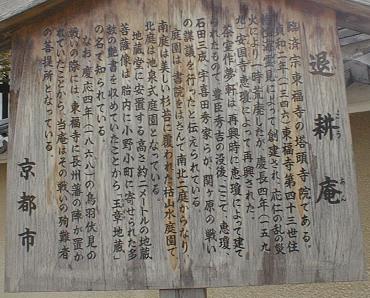 退耕庵
臨済宗東福寺の塔頭寺院である。
貞和二年(一三四六)東福寺第四十三世住
持性海霊見によって創建され、応仁の乱の災
火により一時荒廃したが、慶長四年(一五九
九)安国寺恵瓊によって再興された。
茶室作夢軒は、再興時に恵瓊によって建て
られたもので、豊臣秀吉の没後、ここで、恵瓊、
石田三成、宇喜田秀家らが、関ヶ原の戦い
の謀議を行ったと伝えられている。
庭園は、書院をはさんで南北二庭からなり、
南庭は美しい杉苔に覆われた枯山水庭園で
北庭は池泉式庭園となっている。
地蔵堂に安置する高さ約二メートルの地蔵
菩薩像は、胎内に小野小町に寄せられた多
数の艶書を収めていたことから「玉章地蔵」
の名で知られている。
なお、慶応四年(一八六八)の鳥羽伏見の
戦いの際には、東福寺に長州藩の陣が置か
れていたことから、当庵はその戦いの殉難者
の菩提所となっている。
京都市